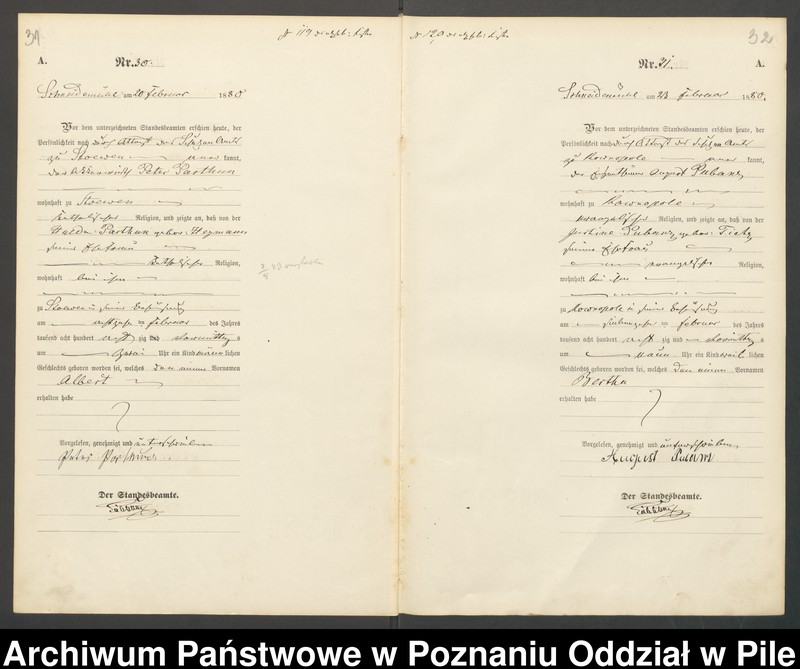 31
A.
Nr. 30.
Schneidemühl am 20 Februar 1880
Vor dem unterzeichneten Standesbeamten erschien heute, der
Persönlichkeit nach durch Attest des Schulzen Amts
zu Stoewen aner kannt,
der Ackerwirth Peter Parthun
wohnhaft zu Stoewen
katholischer Religion, und zeigte an, daß von der
Parthun gebor: Heymann
seiner Ehefrau
katholischer Religion,
wohnhaft bei ihm
zu Stoewen in seiner Behausung
am Februar des Jahres
tausend acht hundert acht zig und Vormittag s
um zwei Uhr ein Kind männ lichen
Geschlechts geboren worden sei, welches den einen Vornamen
Albert
erhalten habe
Vorgelesen, genehmigt und unterschrieben
Peter
Der Standesbeamte.
32
Nr. 31.
A.
Schneidemühl am 23 Februar 1880.
Vor dem unterzeichneten Standesbeamten erschien heute, der
Persönlichkeit nach durch Attest des Schulzen Amts
zu aner kannt,
der Eigenthümer August Pubanz
wohnhaft zu
evangelischer Religion, und zeigte an, daß von der
Justine Pubanz gebor: Tietz
seiner Ehefrau
evangelischer Religion,
wohnhaft bei ihm
zu in seiner Behausung
am siebenzehn ten Februar des Jahres
tausend acht hundert acht zig und Vormittag s
um neun Uhr ein Kind weib lichen
Geschlechts geboren worden sei, welches den einen Vornamen
Bertha
erhalten habe
Vorgelesen, genehmigt und unterschrieben
August
Der Standesbeamte.
Archiwum Państwowe w Poznaniu Oddział w Pile